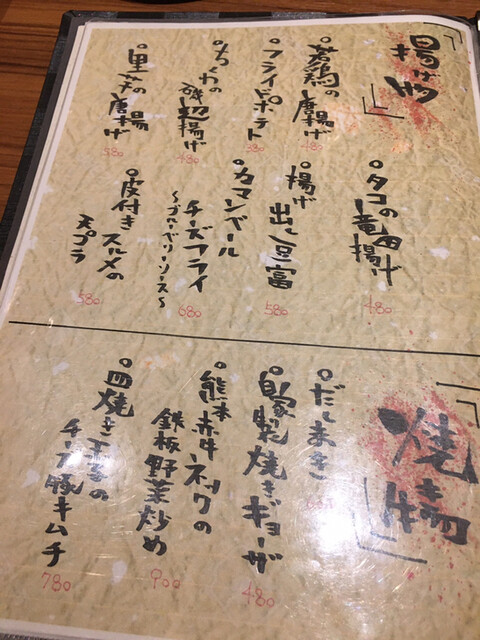 「揚げ物」
○若鶏の唐揚げ
480
○フライドポテト
380
○ちくわの磯辺揚げ
480
○里芋の唐揚げ
580
○タコの竜田揚げ
480
○揚げ出し豆富
580
○カマンベール
チーズフライ
~ブルーベリーソース~
680
○皮付き
スルメの
天プラ
580
「焼き物」
○だしまき
○自家製焼きギョーザ
480
○熊本赤牛ネックの
鉄板野菜炒め
900
○皿焼き玉子の
チーズ豚キムチ
780